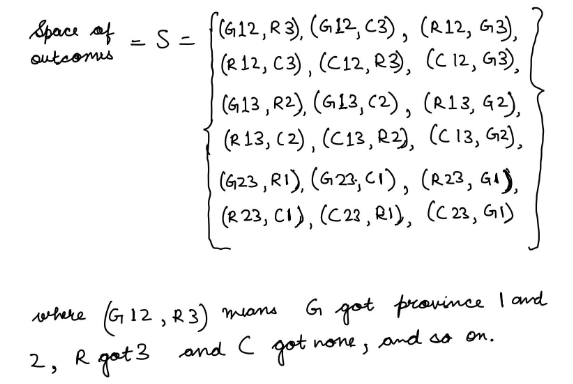 Space of outcomes = S = { (G12, R3), (G12, C3), (R12, G3),
(R12, C3), (C12, R3), (C12, G3),
(G13, R2), (G13, C2), (R13, G2),
(R13, C2), (C13, R2), (C13, G2),
(G23, R1), (G23, C1), (R23, G1),
(R23, C1), (C23, R1), (C23, G1) }
where (G12, R3) means G got province 1 and
2, R got 3 and C got none, and so on.